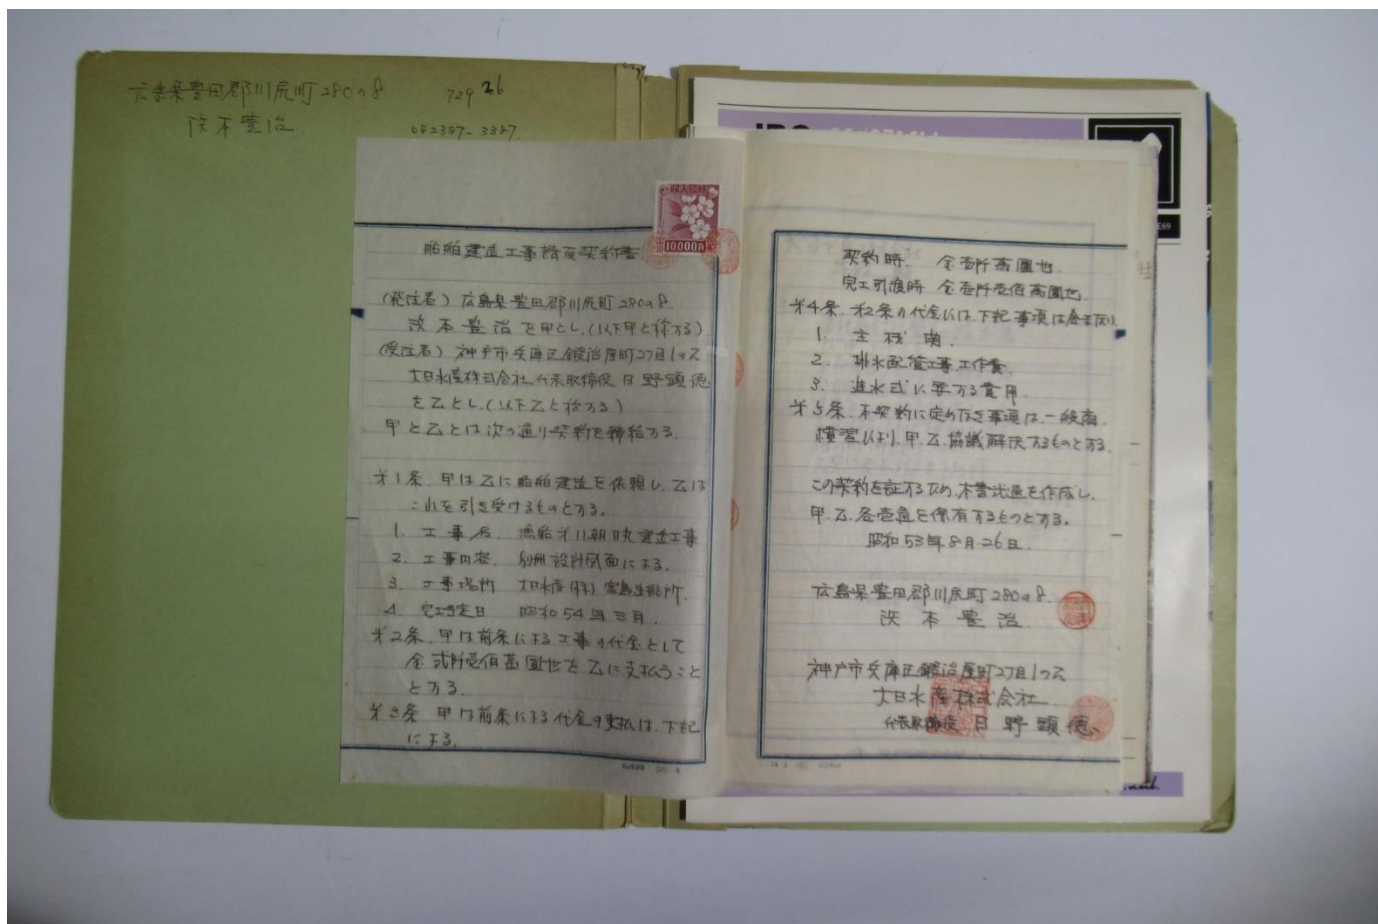 広島県豊田郡川尻町280の8
729 26
浜本豊治
082387-3387
10000円
船舶建造工事請負契約書
(発注者) 広島県豊田郡川尻町280の8
浜本豊治を甲とし、(以下甲と称する)
(受注者) 神戸市兵庫区鍛治屋町2丁目1の2
大日水産株式会社代表取締役日野顕徳
を乙とし、(以下乙と称する)
甲と乙とは次の通り契約を締結する。
才1条. 甲は乙に船舶建造を依頼し、乙は
これを引き受けるものとする。
1. 工事名. 漁船才11朝日丸建造工事
2. 工事内容. 別冊設計図面による。
3. 工事場所 大日水産(株)宮島造船所.
4. 完工予定日 昭和54年三月.
才2条. 甲は前条による工事の代金として
金弐阡壱佰萬圓也を乙に支払うこと
とする.
才3条 甲は前条による代金の支払は、下記
による.
契約時. 金壱阡萬圓也.
完工引渡時 金壱阡壱佰萬圓也.
才4条. 才2条の代金には、下記事項は含まない.
1. 主機関.
2. 排水配管工事工作費.
3. 進水式に要する費用
才5条. 本契約に定めなき事項は、一般商
慣習により、甲.乙.協議解決するものとする.
この契約を証するため、本書弐通を作成し、
甲.乙.各壱通を保有するものとする。
昭和53年8月26日.
広島県豊田郡川尻町280の8.
浜本豊治
神戸市兵庫区鍛治屋町2丁目1の2
大日水産株式会社
代表取締役 日野顕徳